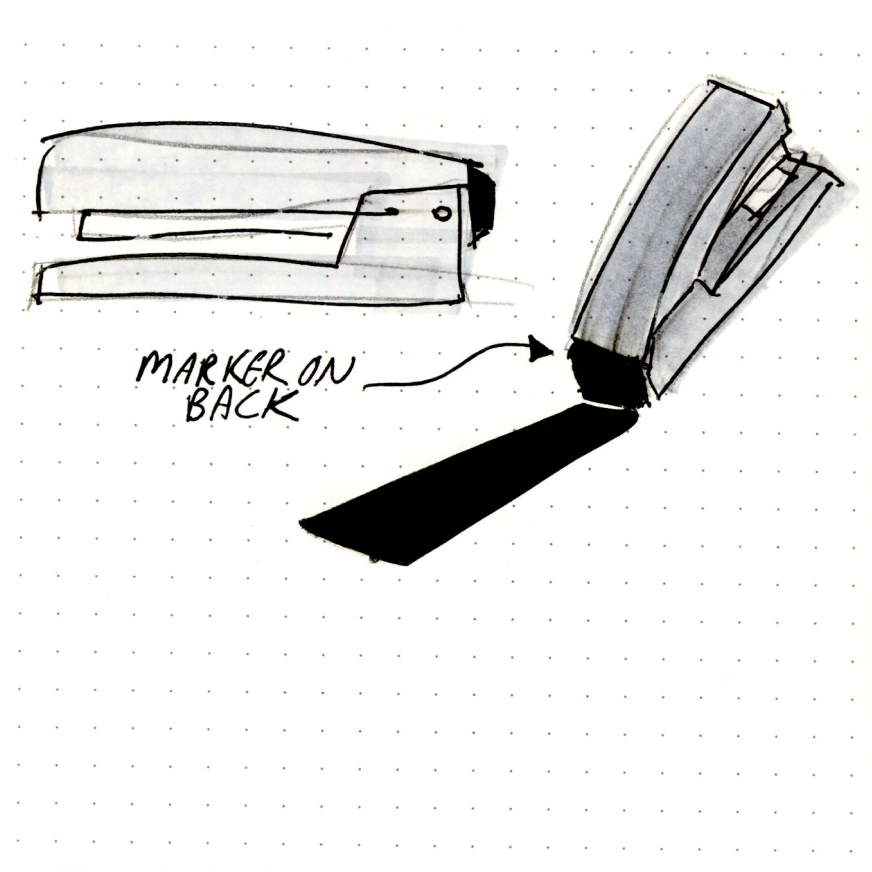 MARKER ON
BACK